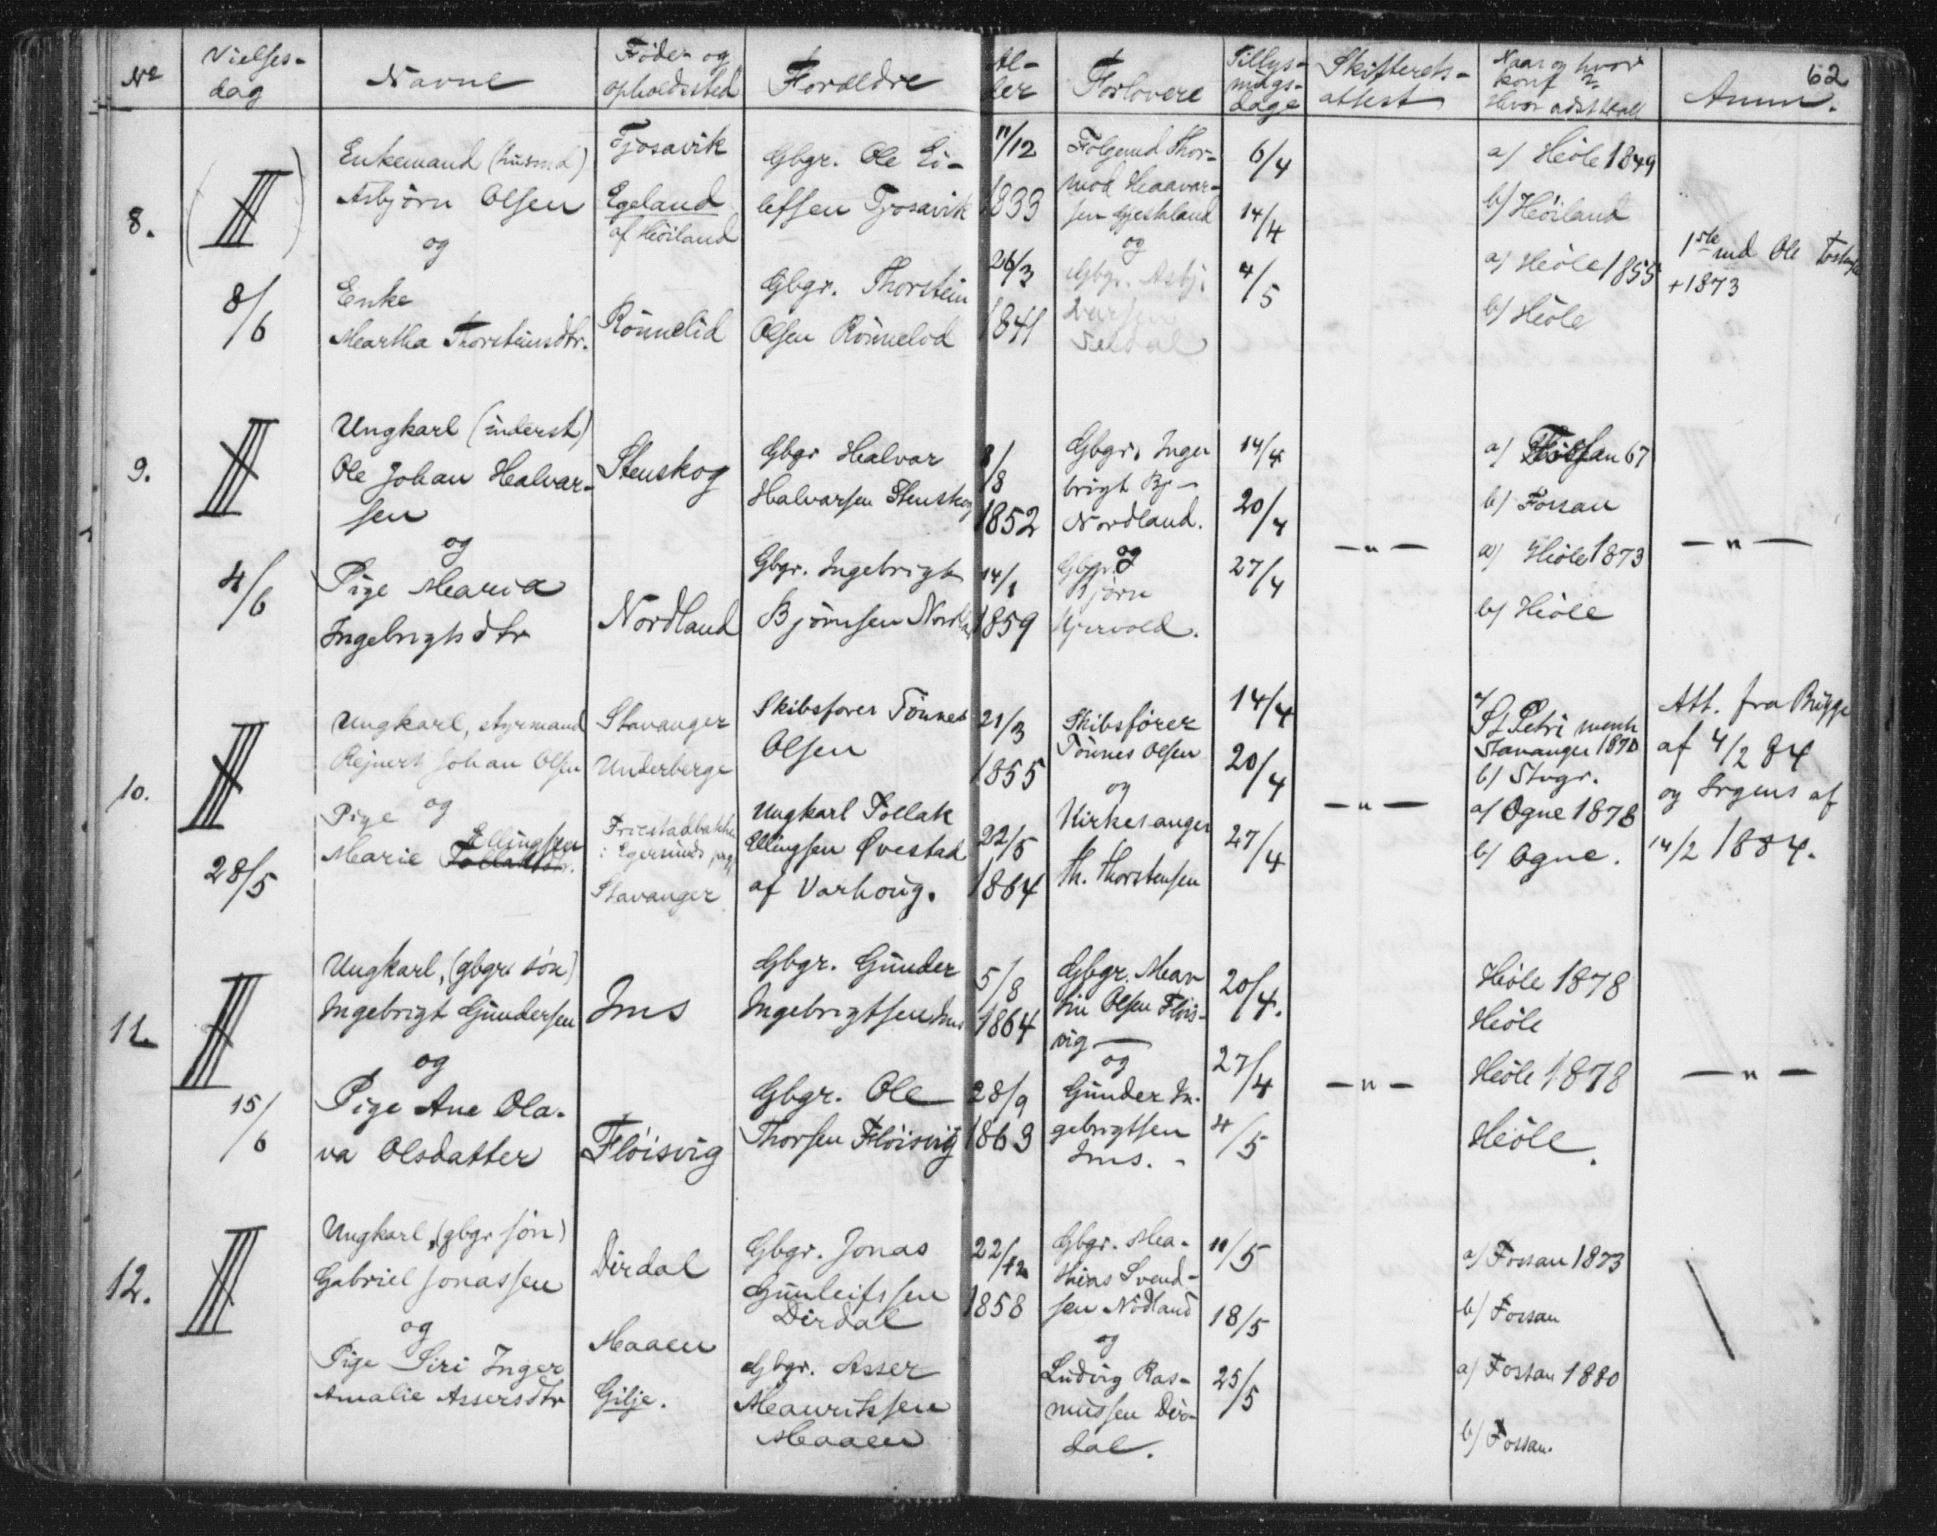 62
No
Vielses-
dag
Navne
Føde- og
opholdssted
Forældre
Al-
der
Forlovere
Tillys-
nings-
dage
Skifterets-
attest
Naar og hvor
konf
Anm.
8.
8/6
Enkemand (husmd)
Asbjörn Olsen
og
Enke
Martha Thorsteinsdtr.
Tjosavik
Egeland
af Höiland
Rönnelid
Gbgr. Ole Ei-
lefsen Tjosavik
Gbgr. Thorstein
Olsen Rönnelid
11/12
1833
26/3
1841
Thor-
mod Haavar-
sen
og
Gbgr. Asbj.
6/4
14/4
4/5
a/ Höle 1849
b/ Höiland
a/ Höle 1855
b/ Höle
1ste md Ole
+1873
9.
4/6
Ungkarl (inderst)
Ole Johan Halvar-
sen
og
Pige Maria
Ingebrigtsdtr
Stenskog
Nordland
Gbgr Halvar
Halvarsen Stenskog
Gbgr. Ingebrigt
Björnsen
8/8
1852
14/1
1859
Gbgr. Inge
brigt Bj-
Nordland.
og
Gbgr.
Björn
14/4
20/4
27/4
—"—
a/ Fossan 67
b/ Fossan
a/ Höle 1873
b/ Höle
—"—
10.
28/5
Ungkarl, styrmand
Rejnert Johan Olsen
og
Pige
Ellingsen
Marie
Stavanger
Underberge
i Egersunds
Stavanger
Skibsfører Tönnes
Olsen
Ungkarl Tollak
Ellingsen Øvestad
af Varhoug.
21/3
1855
22/5
1864
Skibsfører
Tönnes Olsen
og
Kirkesanger
Th. Thorstensen
14/4
20/4
27/4
—"—
a/
St Petri menh
Stavanger 1870
b/ Stvgr.
a/ Ogne 1878
b/ Ogne.
Att. fra
af 4/2 84
og af
14/2 1884.
11.
15/6
Ungkarl, (gbgrs søn)
Ingebrigt Gundersen
og
Pige Ane Ola-
va Olsdatter
Ims
Fløisvig
Gbgr. Gunder
Ingebrigtsen Ims
Gbgr. Ole
Thorsen Fløisvig
5/8
1864
28/9
1863
Gbgr. Mar
tin Olsen Fløis-
vig —
og
Gunder In-
gebrigtsen
Ims. -
20/4.
27/4
4/5
—"—
Høle 1878
Høle
Høle 1878
Høle.
—"—
12.
Ungkarl, (gbgr søn)
Gabriel Jonassen
og
Pige Siri Inger
Amalie Assersdtr
Dirdal
Maaen
Gilje.
Gbgr. Jonas
Gunleifssen
Dirdal
Gbgr. Asser
Mauritssen
Maaen
22/12
1858
Gbgr. Ma-
thias Svend-
sen Nödland
og
Ludvig Ras-
mussen Dir-
dal.
11/5
18/5
25/5
a/ Fossan 1873
b/ Fossan
a/ Fossan 1880
b/ Fossan.